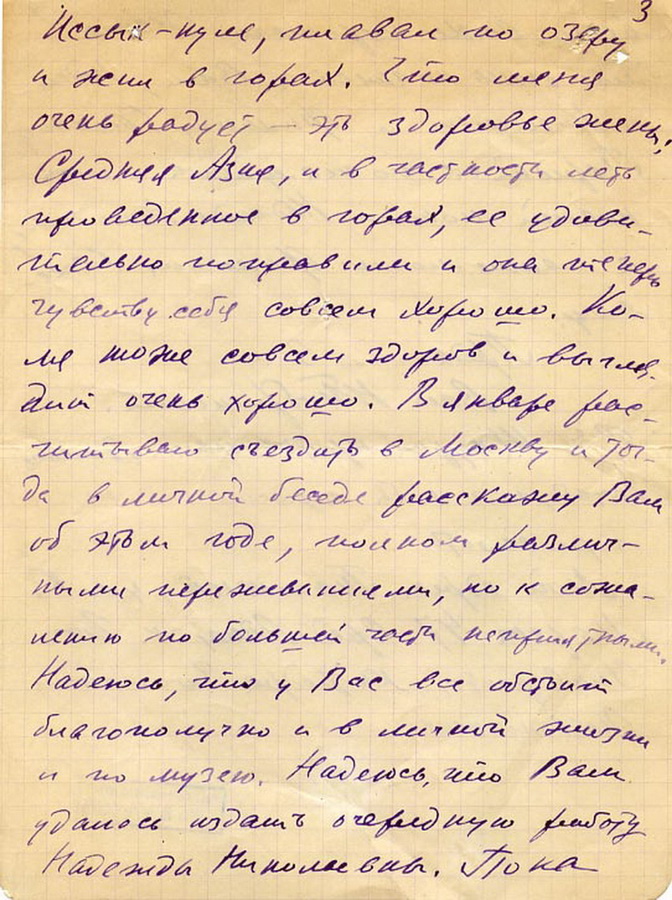 3
Иссык-куле, плавал по озеру
и жил в горах. Что меня
очень радует – это здоровье жены.
Средняя Азия, и в частности лето
проведенное в горах, ее удиви-
тельно поправили и она теперь
чувству. себя совсем хорошо. Ко-
ля тоже совсем здоров и выгля-
дит очень хорошо. В январе рас-
читываю съездить в Москву и тог-
да в личной беседе расскажу Вам
об этом годе, полном различ-
ными переживаниями, но к сожа-
лению по большей части неприятными.
Надеюсь, что у Вас все обстоит
благополучно и в личной жизни
и по музею. Надеюсь, что Вам
удалось издать очередную работу
Надежды Николаевны. Пока